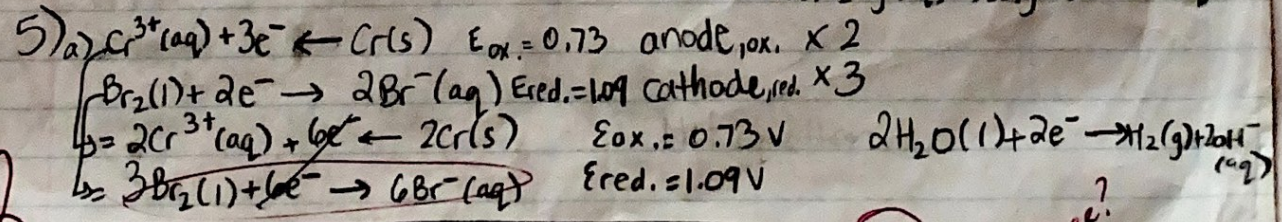 5) a) Cr³⁺(aq) + 3e⁻ ← Cr(s) Eox. = 0.73 anode, ox. × 2
Br₂(l) + 2e⁻ → 2Br⁻(aq) Ered. = 1.09 cathode, red. × 3
↳ = 2Cr³⁺(aq) + 6e⁻ ← 2Cr(s) Eox. = 0.73 V 2H₂O(l) + 2e⁻ → H₂(g) + 2OH⁻(aq)
↳ = 3Br₂(l) + 6e⁻ → 6Br⁻(aq) Ered. = 1.09 V ?